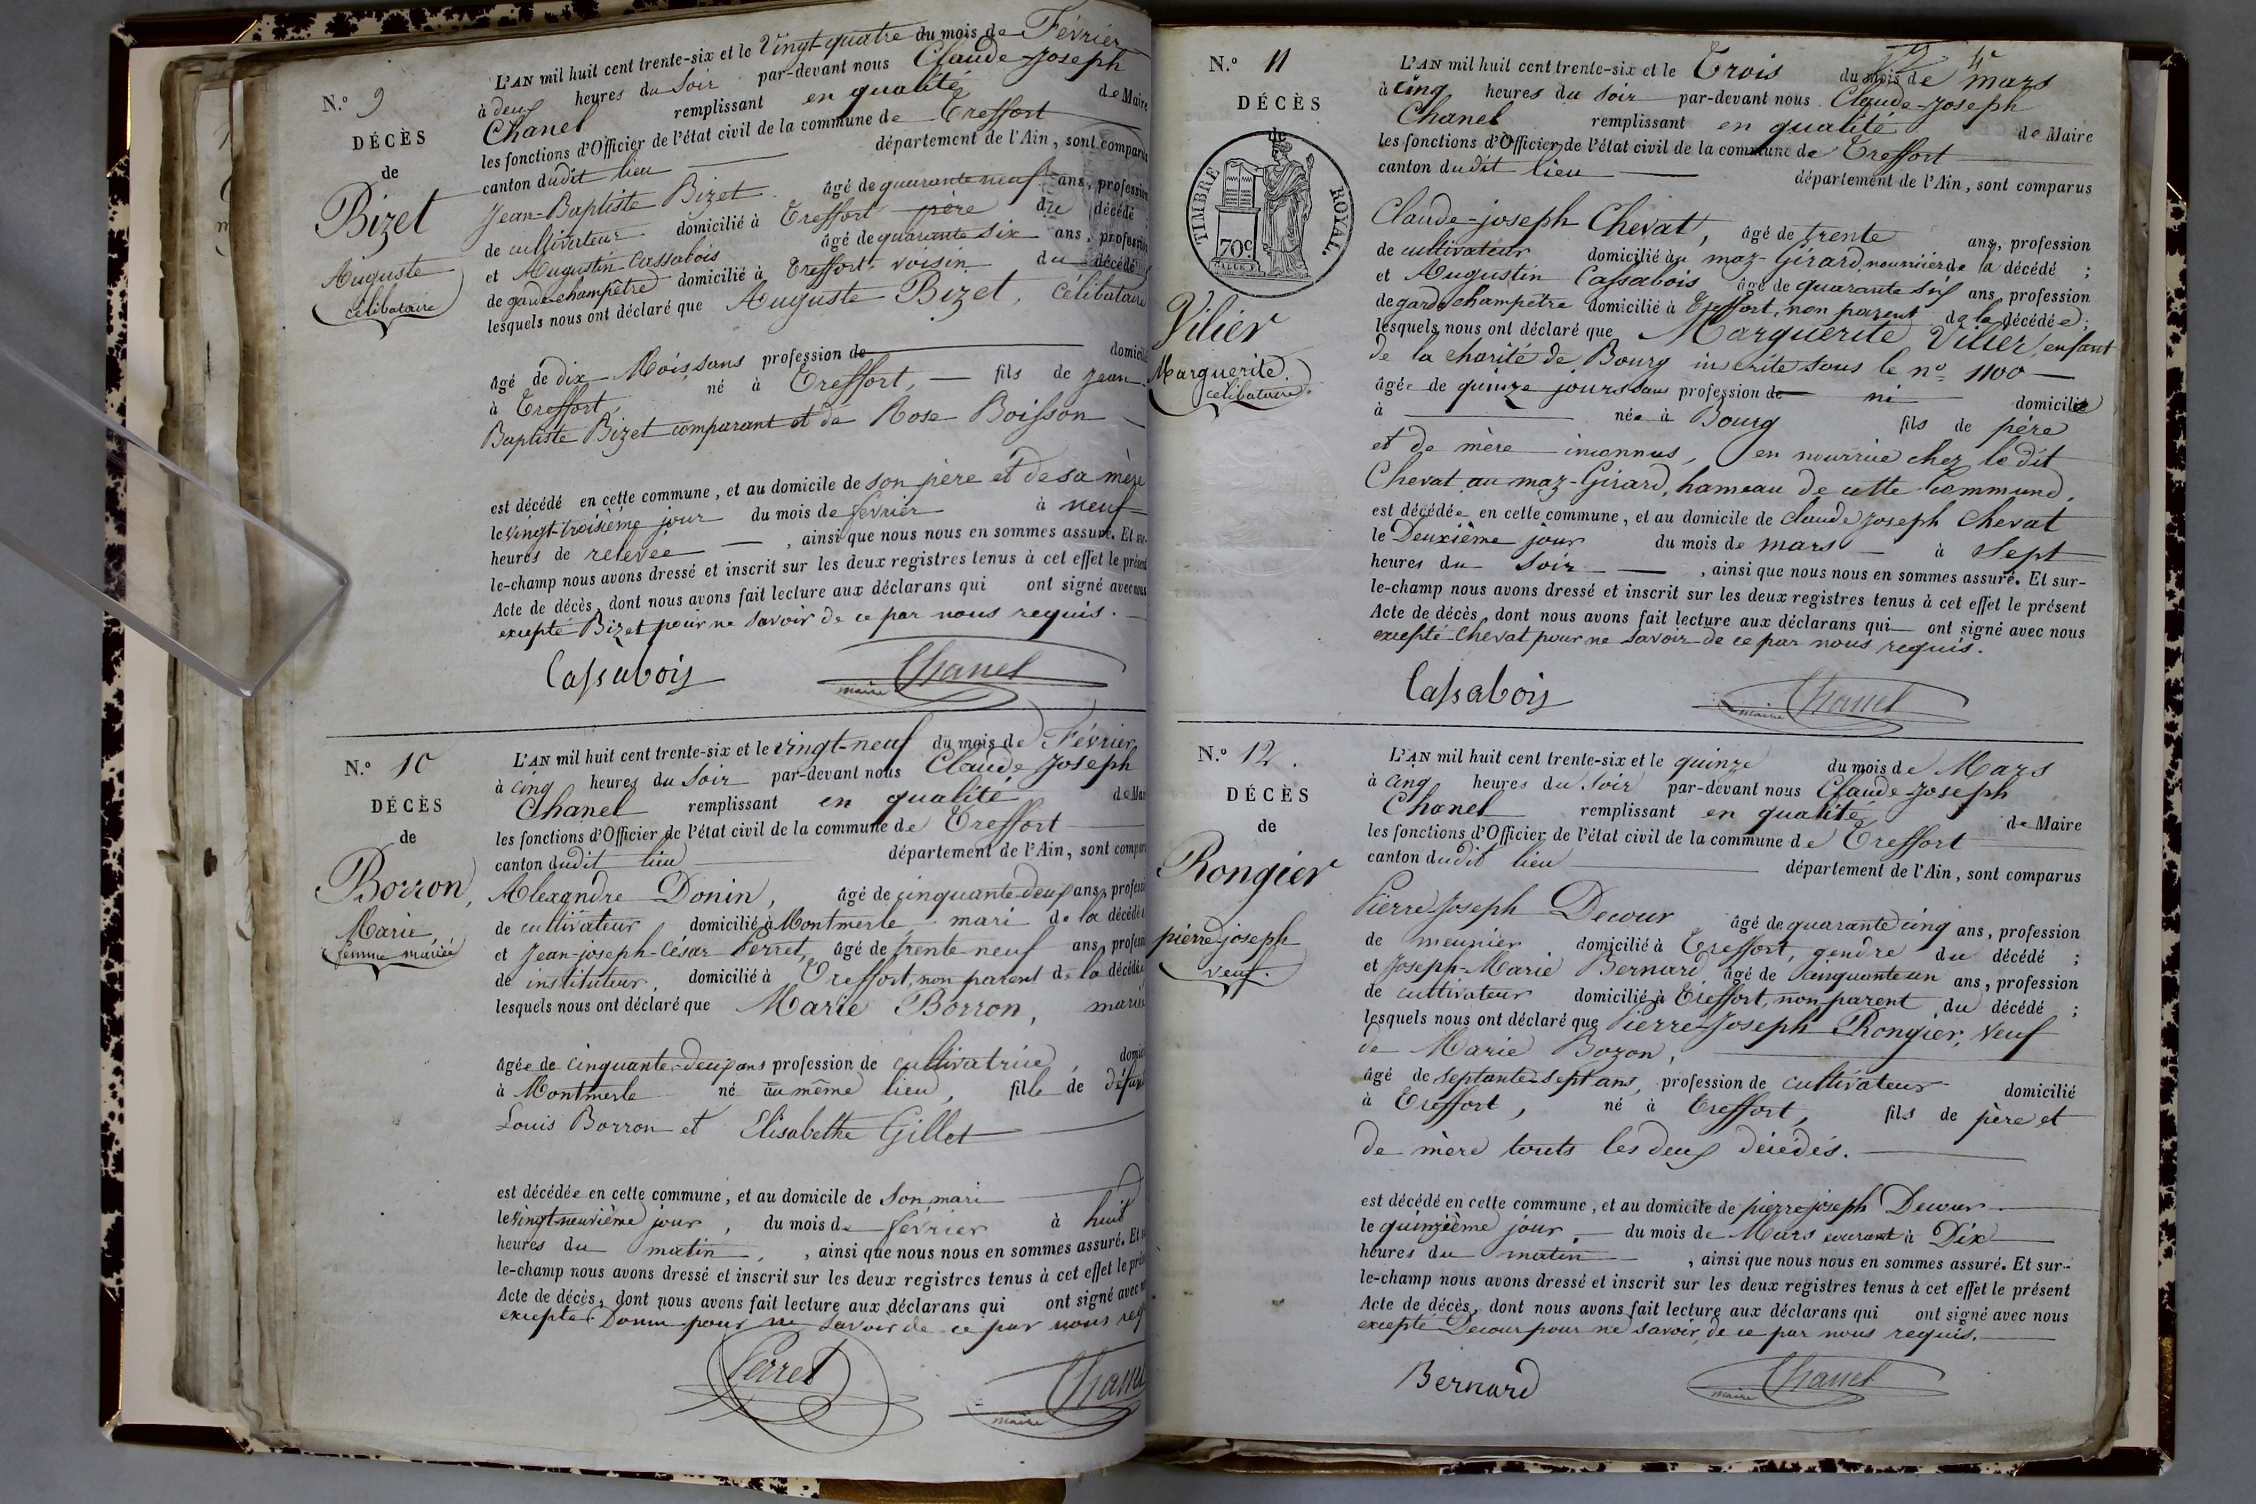 N.º 9
DÉCÈS
de
Bizet
Auguste
célibataire
L'AN mil huit cent trente-six et le Vingt-quatre du mois de Février
à deux heures du Soir par-devant nous Claude-Joseph
Chanel remplissant en qualité de Maire
les fonctions d'Officier de l'état civil de la commune de Treffort
canton dudit lieu département de l'Ain, sont comparus
Jean-Baptiste Bizet âgé de quarante neuf ans, profession
de cultivateur domicilié à Treffort père du décédé
et Augustin Cassabois âgé de quarante six ans, profession
de garde-champêtre domicilié à Treffort voisin du décédé
lesquels nous ont déclaré que Auguste Bizet, célibataire
âgé de dix Mois sans profession de domicilié
à Treffort, né à Treffort, fils de Jean
Baptiste Bizet comparant et de Rose Boisson
est décédé en cette commune, et au domicile de son père et de sa mère
le vingt-troisième jour du mois de février à neuf
heures de relevée, ainsi que nous nous en sommes assuré. Et sur-
le-champ nous avons dressé et inscrit sur les deux registres tenus à cet effet le présent
Acte de décès, dont nous avons fait lecture aux déclarans qui ont signé avec nous
excepté Bizet pour ne savoir de ce par nous requis.
Cassabois Chanel
maire
N.º 10
DÉCÈS
de
Borron,
Marie
femme mariée
L'AN mil huit cent trente-six et le vingt-neuf du mois de Février
à cinq heures du Soir par-devant nous Claude Joseph
Chanel remplissant en qualité de Maire
les fonctions d'Officier de l'état civil de la commune de Treffort
canton dudit lieu département de l'Ain, sont comparus
Alexandre Donin, âgé de cinquante-deux ans, profession
de cultivateur domicilié à Montmerle mari de la décédée
et Jean-joseph-César Perret, âgé de trente neuf ans, profession
de instituteur, domicilié à Treffort, non parent de la décédée
lesquels nous ont déclaré que Marie Borron, mariée
âgée de cinquante-deux ans profession de cultivatrice, domici
à Montmerle né au même lieu, fille de défunt
Louis Borron et Elisabethe Gillet
est décédée en cette commune, et au domicile de Son mari
le vingt-neuvième jour, du mois de février à huit
heures du matin, , ainsi que nous nous en sommes assuré. Et s
le-champ nous avons dressé et inscrit sur les deux registres tenus à cet effet le prés
Acte de décès, dont nous avons fait lecture aux déclarans qui ont signé avec n
excepté Donin pour ne savoir de ce par nous req
Perret Chanel
maire
N.º 11
DÉCÈS
de
TIMBRE ROYAL.
70c.
Vilier
Marguerite
célibataire.
L'AN mil huit cent trente-six et le Trois du mois de mars
à cinq heures du soir par-devant nous Claude-Joseph
Chanel remplissant en qualité de Maire
les fonctions d'Officier de l'état civil de la commune de Treffort
canton dudit lieu département de l'Ain, sont comparus
Claude-joseph Chevat, âgé de trente ans, profession
de cultivateur domicilié au maz-Girard, nourricier de la décédé ;
et Augustin Cassabois âgé de quarante six ans, profession
de garde champêtre domicilié à Treffort, non parent de la décédée ;
lesquels nous ont déclaré que Marguerite Vilier, enfant
de la charité de Bourg inscrite sous le nº 1100
âgée de quinze jours sans profession de ni domiciliée
à née à Bourg fils de père
et de mère inconnus, en nourrice chez le dit
Chevat au maz-Girard, hameau de cette Commune.
est décédée en cette commune, et au domicile de claude joseph Chevat
le Deuxième jour du mois de mars à Sept
heures du Soir , ainsi que nous nous en sommes assuré. Et sur-
le-champ nous avons dressé et inscrit sur les deux registres tenus à cet effet le présent
Acte de décès, dont nous avons fait lecture aux déclarans qui ont signé avec nous
excepté Chevat pour ne savoir de ce par nous requis.
Cassabois Chanel
maire
N.º 12.
DÉCÈS
de
Rongier
pierre joseph
veuf.
L'AN mil huit cent trente-six et le quinze du mois de Mars
à cinq heures du Soir par-devant nous Claude-Joseph
Chanel remplissant en qualité de Maire
les fonctions d'Officier de l'état civil de la commune de Treffort
canton dudit lieu département de l'Ain, sont comparus
Pierre-Joseph Decour âgé de quarante cinq ans, profession
de meunier domicilié à Treffort, gendre du décédé ;
et Joseph-Marie Bernard âgé de cinquante un ans, profession
de cultivateur domicilié à Treffort, non parent du décédé ;
lesquels nous ont déclaré que Pierre-Joseph Rongier, Veuf
de Marie Bozon,
âgé de septante-sept ans, profession de cultivateur domicilié
à Treffort, né à Treffort, fils de père et
de mère touts les deux décédés.
est décédé en cette commune, et au domicile de pierre joseph Decour
le quinzième jour, du mois de Mars courant à Dix
heures du matin , ainsi que nous nous en sommes assuré. Et sur-
le-champ nous avons dressé et inscrit sur les deux registres tenus à cet effet le présent
Acte de décès, dont nous avons fait lecture aux déclarans qui ont signé avec nous
excepté Decour pour ne savoir de ce par nous requis.
Bernard Chanel
maire